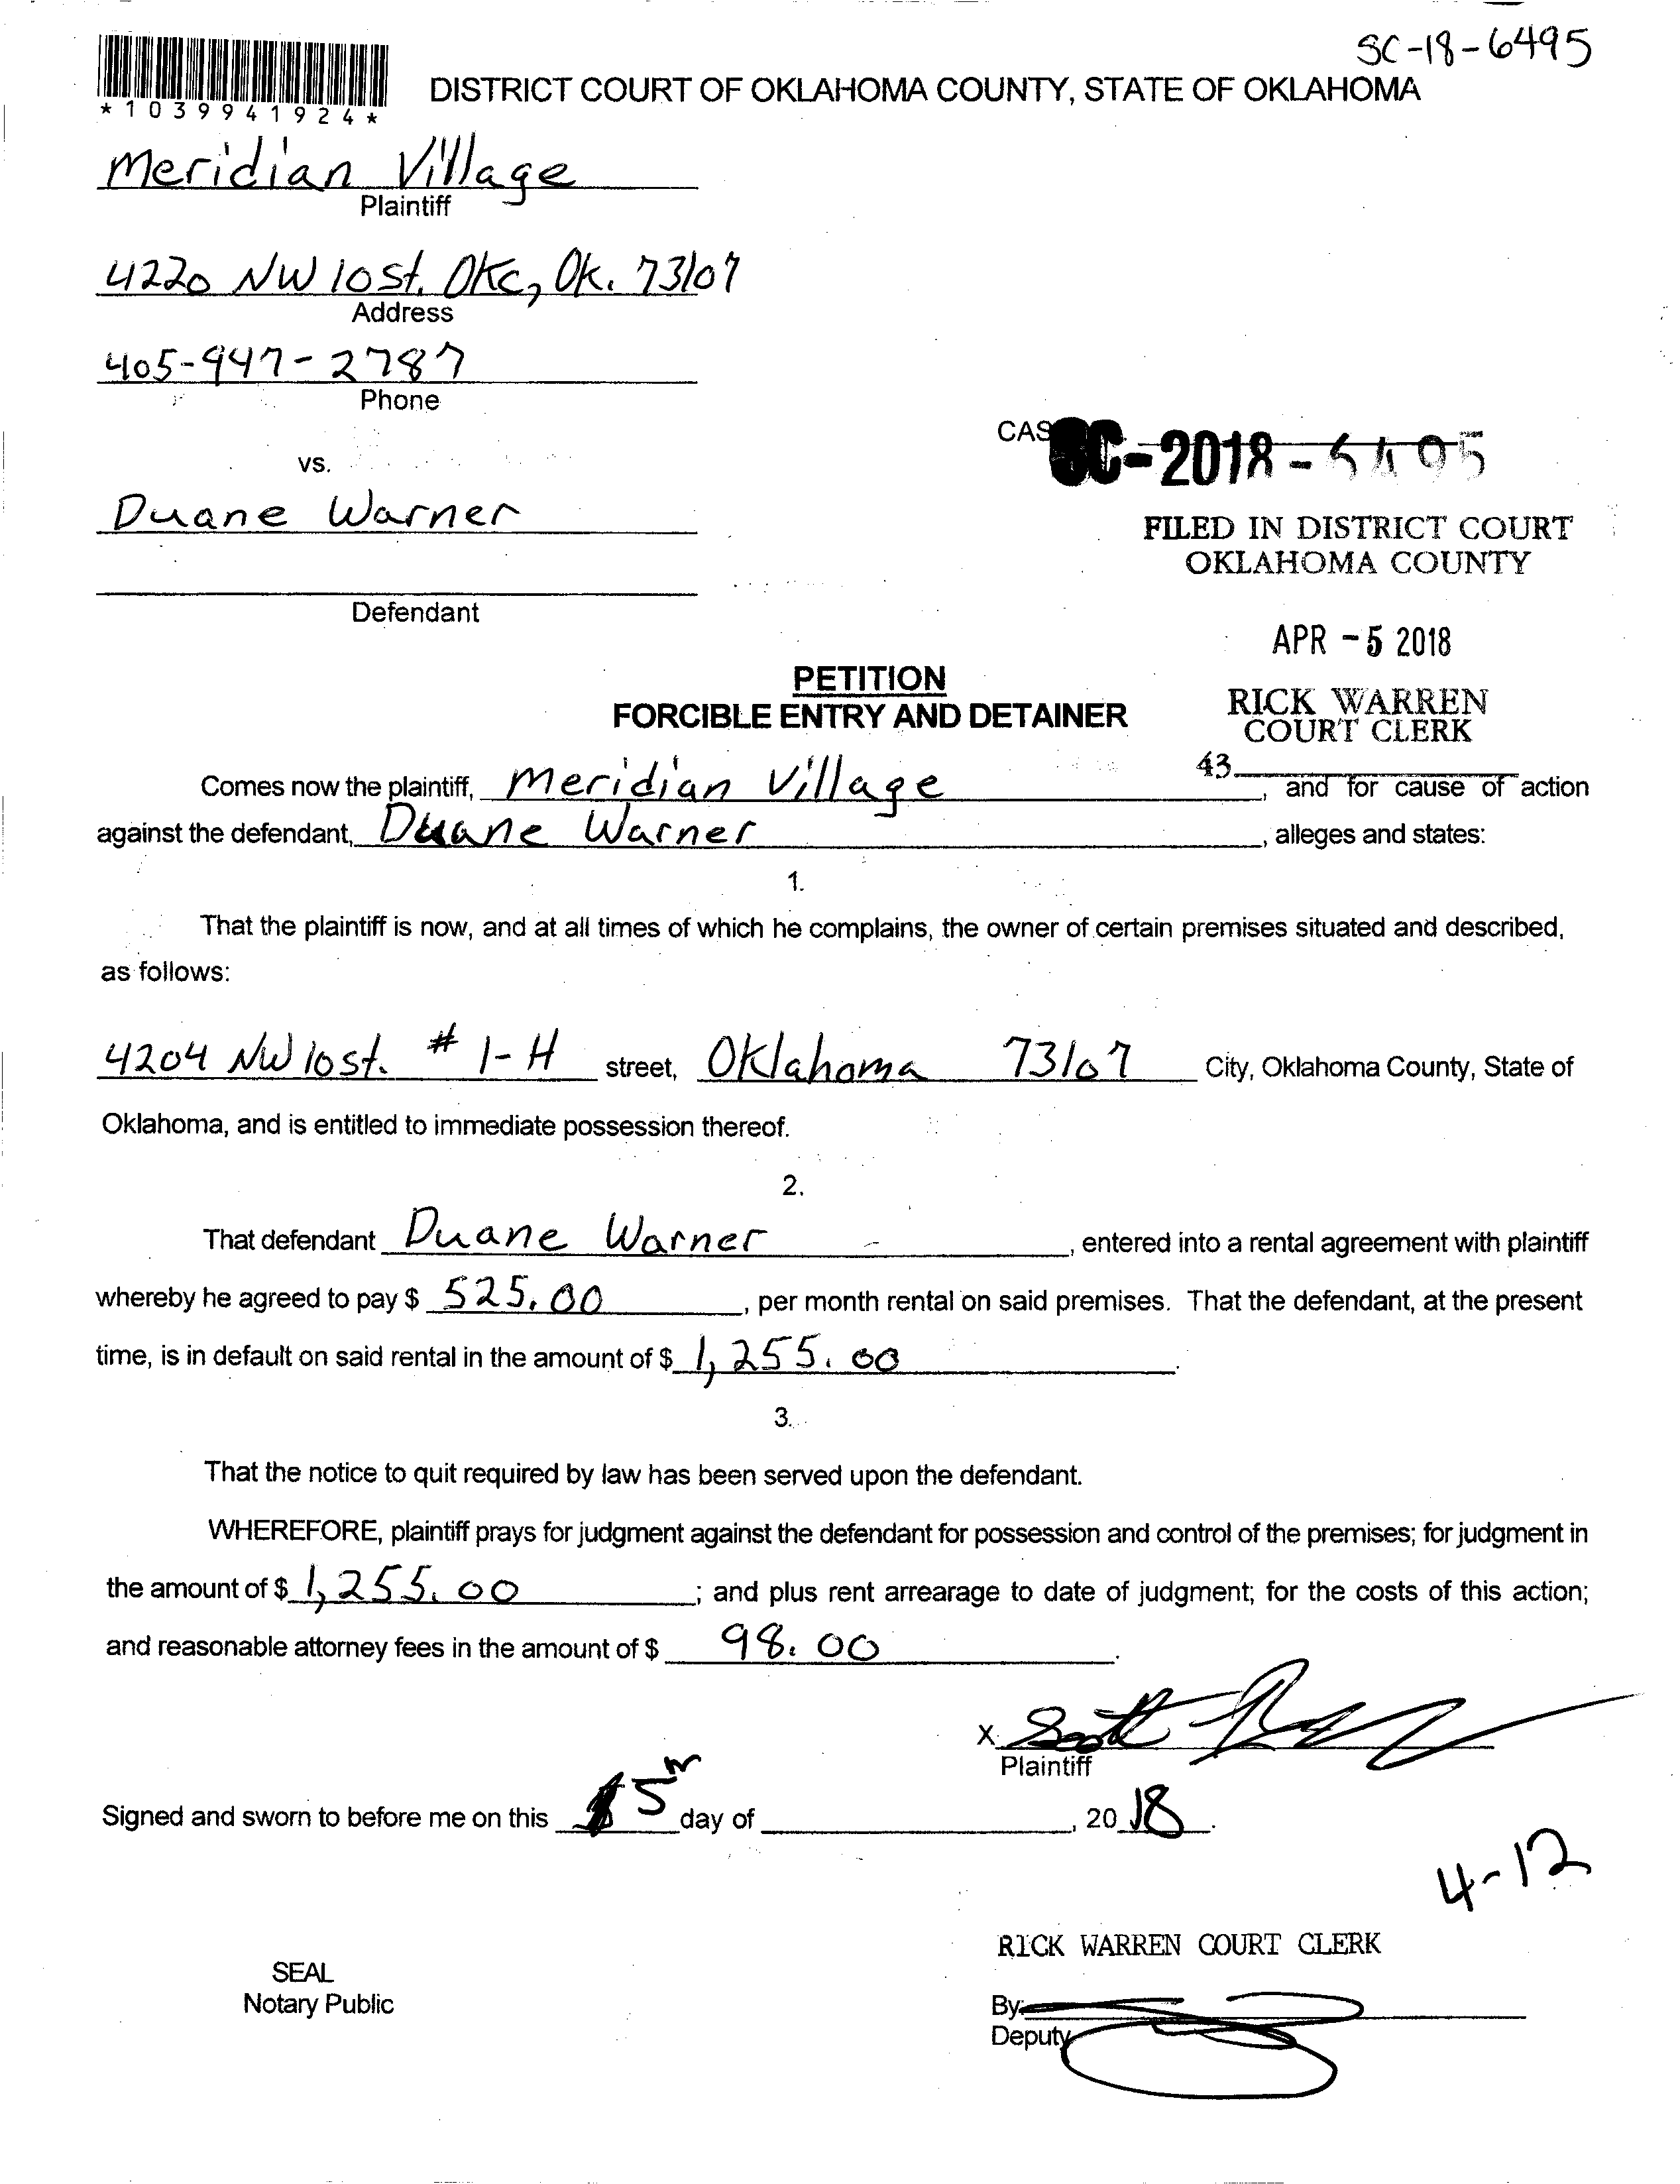 SC-18-6495
*1039941924*
DISTRICT COURT OF OKLAHOMA COUNTY, STATE OF OKLAHOMA
Meridian Village
Plaintiff
4220 NW 10 St. OKC, Ok. 73107
Address
405-947-2787
Phone
vs.
CAS SC-2018-6495
Duane Warner
FILED IN DISTRICT COURT
OKLAHOMA COUNTY
Defendant
APR -5 2018
PETITION
FORCIBLE ENTRY AND DETAINER
RICK WARREN
COURT CLERK
43
Comes now the plaintiff, Meridian Village, and for cause of action
against the defendant, Duane Warner, alleges and states:
1.
That the plaintiff is now, and at all times of which he complains, the owner of certain premises situated and described,
as follows:
4204 NW 10 st. # 1-H street, Oklahoma 73107 City, Oklahoma County, State of
Oklahoma, and is entitled to immediate possession thereof.
2.
That defendant Duane Warner, entered into a rental agreement with plaintiff
whereby he agreed to pay $ 525.00, per month rental on said premises. That the defendant, at the present
time, is in default on said rental in the amount of $ 1,255.00.
3.
That the notice to quit required by law has been served upon the defendant.
WHEREFORE, plaintiff prays for judgment against the defendant for possession and control of the premises; for judgment in
the amount of $ 1,255.00; and plus rent arrearage to date of judgment; for the costs of this action;
and reasonable attorney fees in the amount of $ 98.00.
X Scott
Plaintiff
Signed and sworn to before me on this 5th day of , 20 18.
4-12
RICK WARREN COURT CLERK
SEAL
Notary Public
By:
Deputy